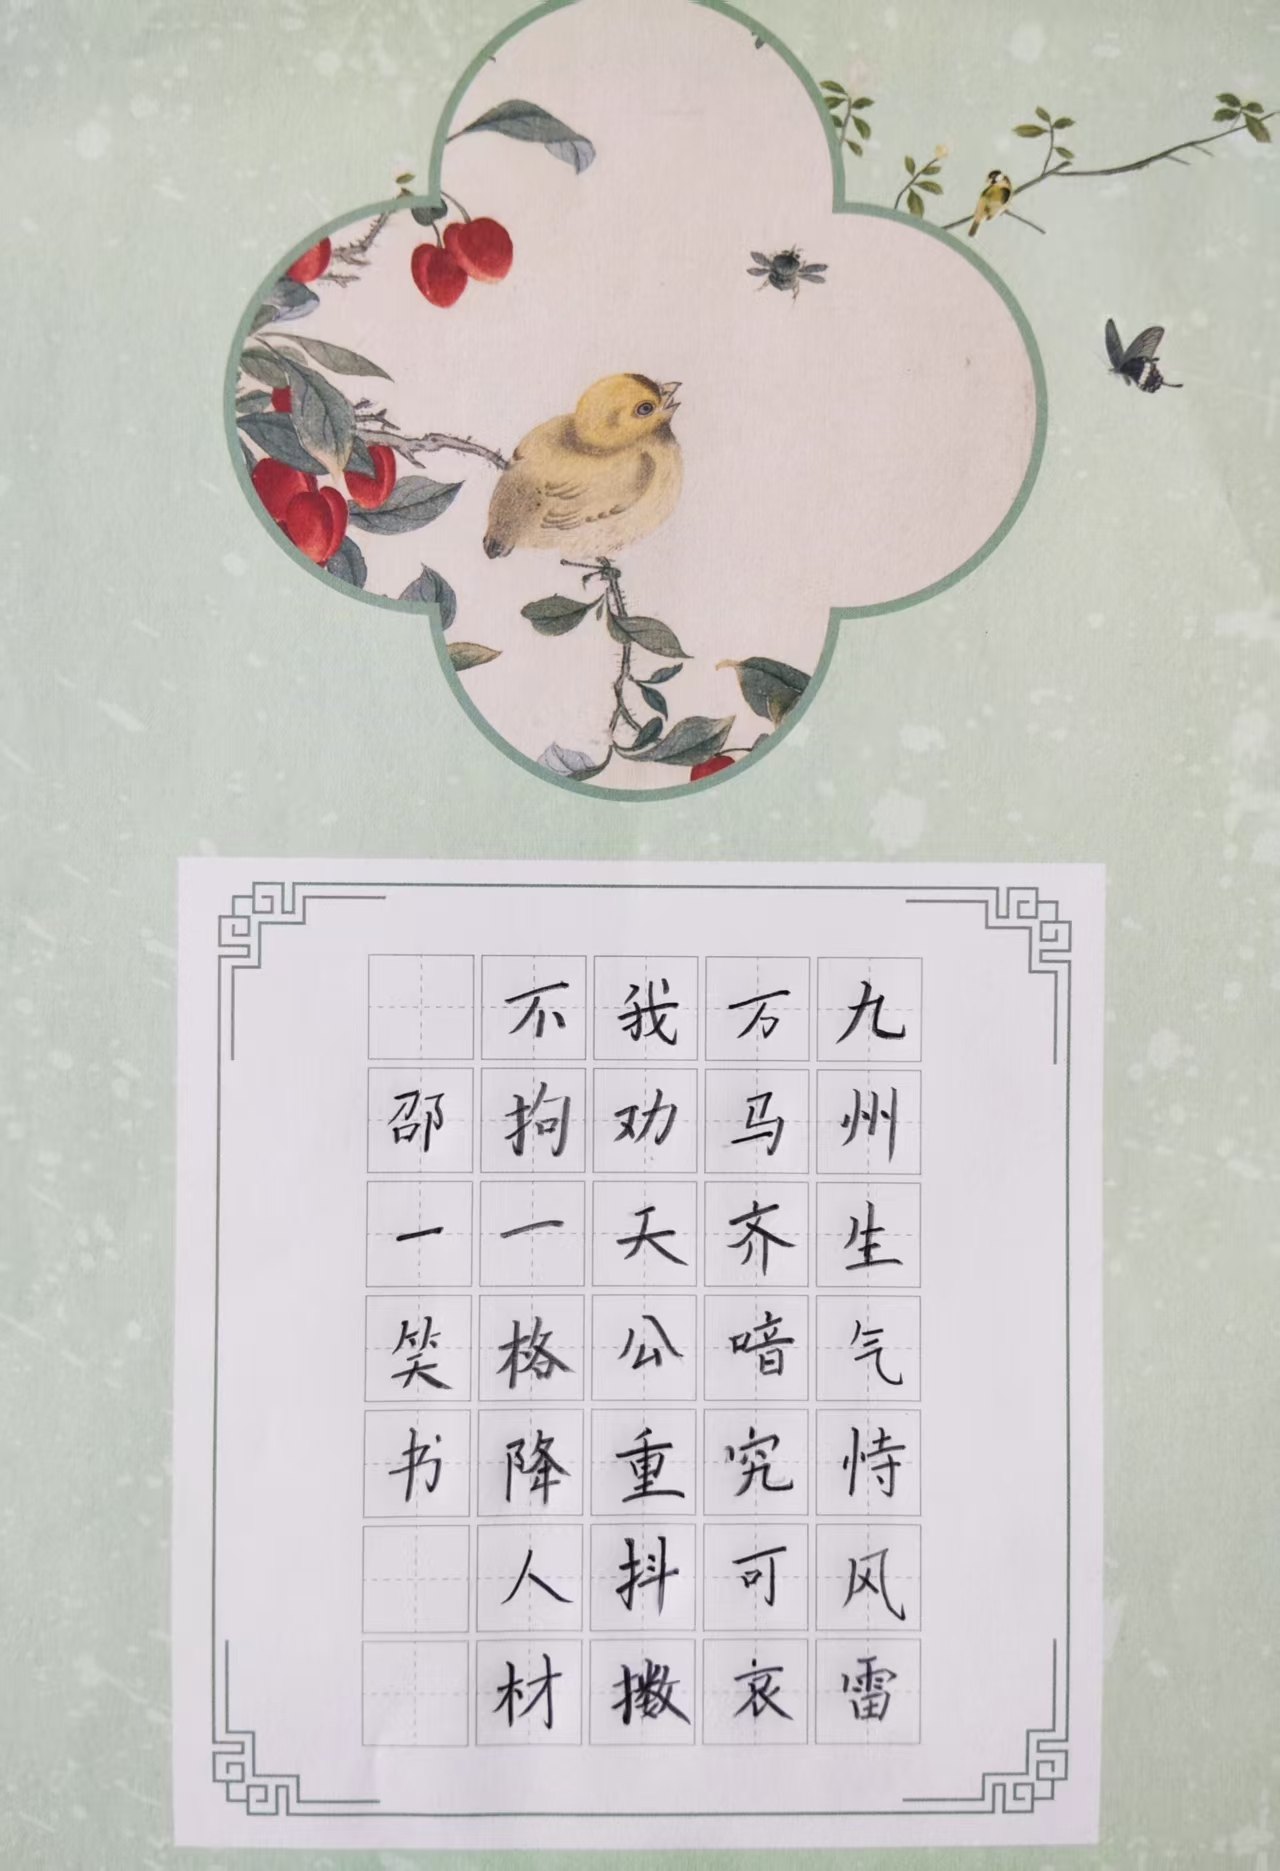 九州生气恃风雷
万马齐喑究可哀
我劝天公重抖擞
不拘一格降人材
邵一笑书